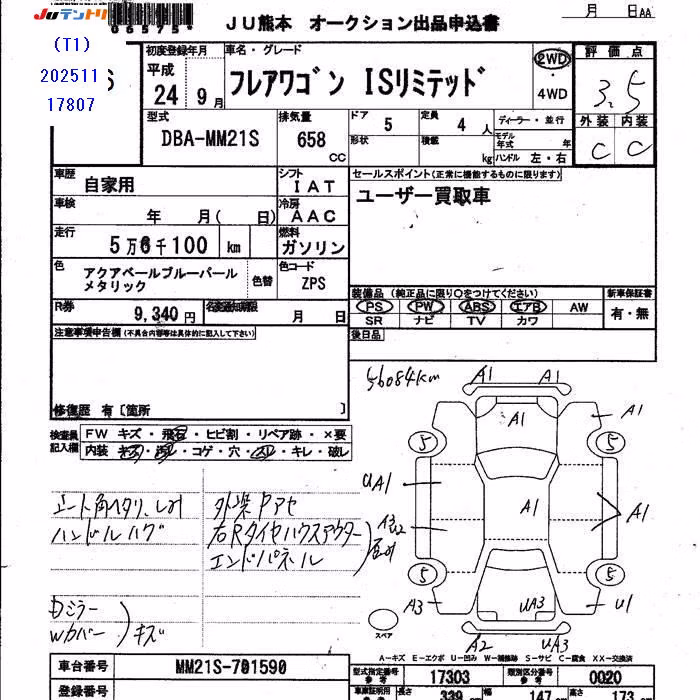 Juテントリ
06575
JU熊本 オークション出品申込書
月 日AA
(T1)
202511
17807
S
初度登録年月
平成
24 9月
車名・グレード
フレアワゴン ISリミテッド
2WD
・
4WD
評価点
3.5
外装 内装
C C
型式
DBA-MM21S
排気量
658
CC
ドア
5
定員
4 人
形状
積載
kg
ディーラー・並行
モデル年式 年
ハンドル 左・右
車歴
自家用
シフト
IAT
セールスポイント(正常に機能するものに限ります)
ユーザー買取車
車検
年 月( 日)
冷房
AAC
走行
5万6千100 km
燃料
ガソリン
色
アクアペールブルーパール
メタリック
色替
色コード
ZPS
装備品 (純正品に限り○をつけてください)
新車保証書
PS PW ABS エアB AW
SR ナビ TV カワ
有・無
R券
9,340円
名変通知期限
月 日
後日品
注意事項申告欄 (不具合内容等は具体的に記入して下さい)
修復歴 有〔箇所 〕
検査員
記入欄
FW キズ・飛石・ヒビ割・リペア跡・×要
内装 キズ・汚レ・コゲ・穴・スレ・キレ・破レ
56084km
A1 A1
A1
A1
5 5
UA1
A1
A1
5 5
A3
UA3
U1
A2 UA3
スペア
シート角ヘタリ、しみ
ハンドルハゲ
外装Pアセ
右Rタイヤハウスアウター
エンドパネル
Dミラー
Wカバー
キズ
A-キズ E-エクボ U-凹み W-補修跡 S-サビ C-腐食 XX-交換済
車台番号
MM21S-701590
登録番号
型式指定番号
参考
17303
類別区分番号
参考
0020
車庫証明用
参考
長さ
339
幅
147
高さ
173